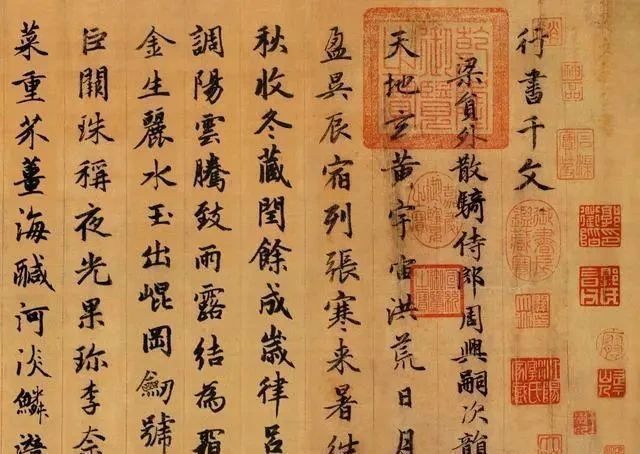 行書千文
梁員外散騎侍郎周興嗣次韻
天地玄黃宇宙洪荒日月
盈昃辰宿列張寒来暑往
秋收冬蔵閏餘成歲律呂
調陽雲騰致雨露結為霜
金生麗水玉出崐岡劒號
巨闕珠稱夜光果珍李柰
菜重芥薑海醎河淡鱗潛